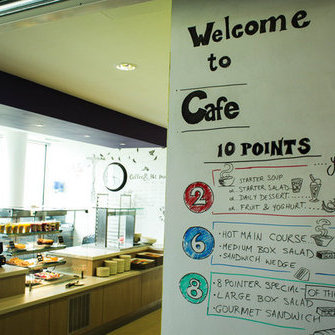 Welcome
to
Cafe
10 POINTS
2
STARTER SOUP
OR STARTER SALAD
OR DAILY DESSERT
OR FRUIT & YOGHURT
6
• HOT MAIN COURSE
• MEDIUM BOX SALAD
• SANDWICH WEDGE
8
• 8 POINTER SPECIAL
• LARGE BOX SALAD
• GOURMET SANDWICH
OF TH